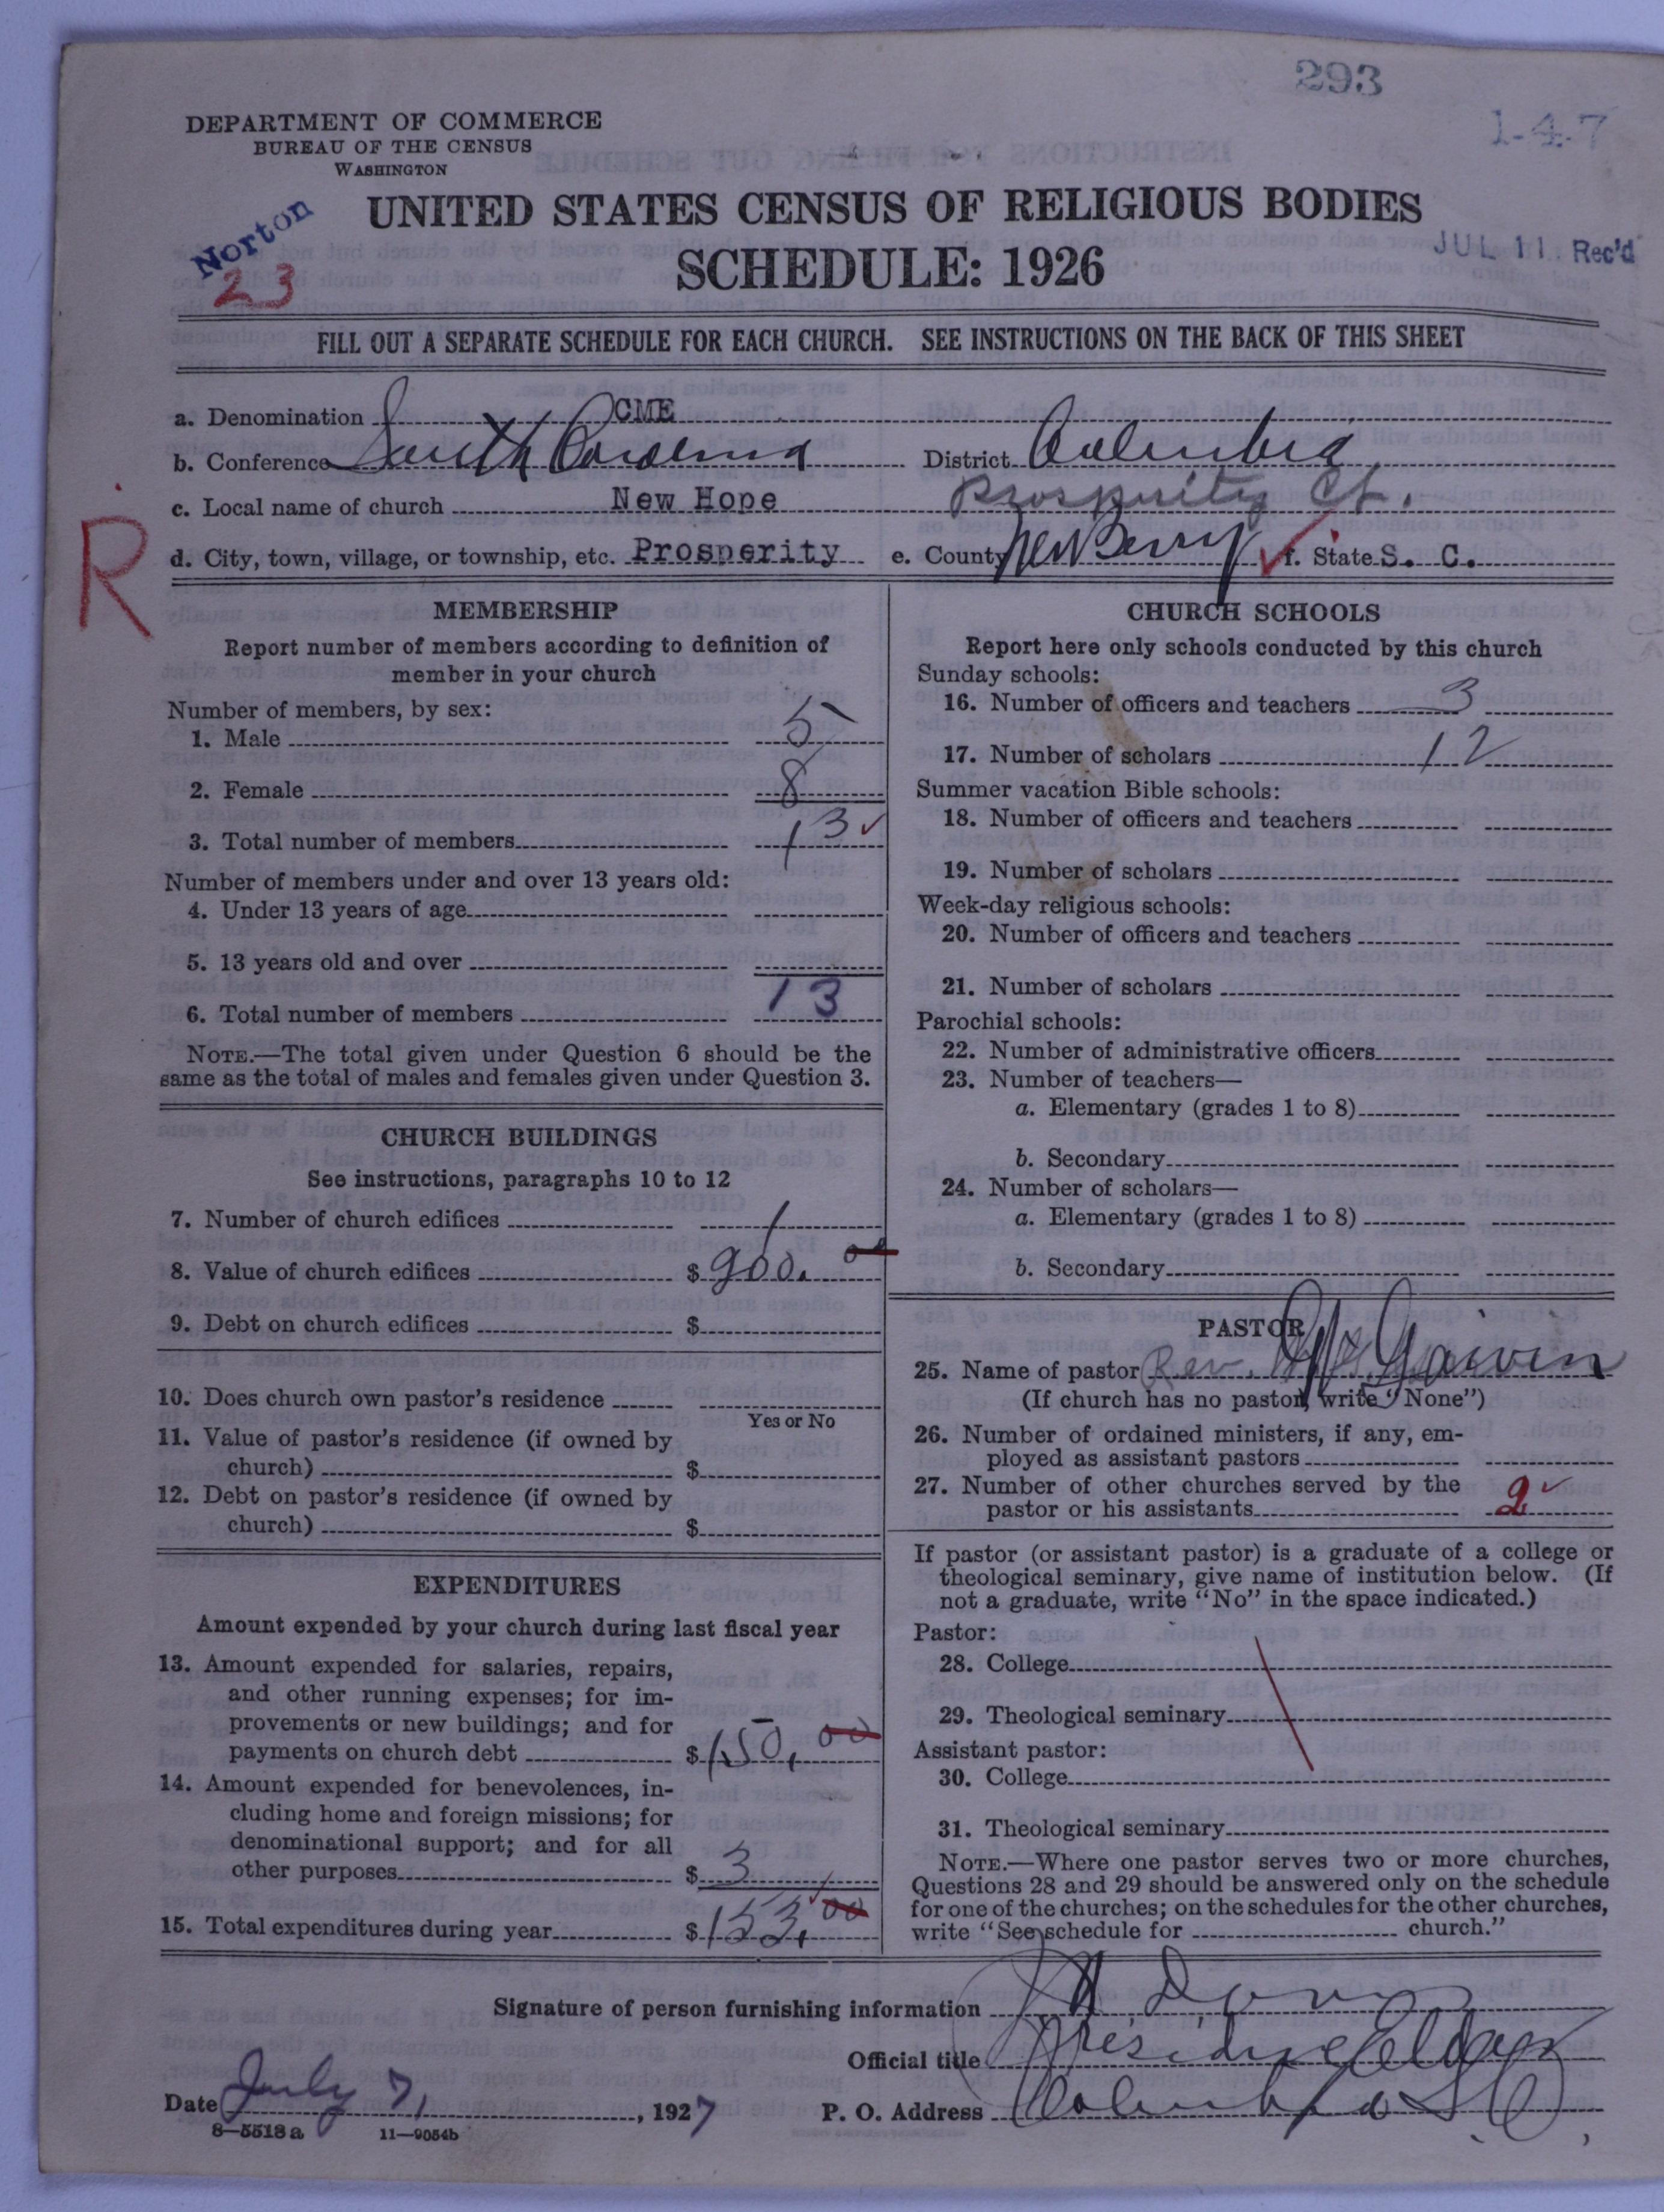 293
1-4-7
DEPARTMENT OF COMMERCE
BUREAU OF THE CENSUS
WASHINGTON
Norton
23
UNITED STATES CENSUS OF RELIGIOUS BODIES
SCHEDULE: 1926
JUL 11 Rec'd
FILL OUT A SEPARATE SCHEDULE FOR EACH CHURCH. SEE INSTRUCTIONS ON THE BACK OF THIS SHEET
a. Denomination CME
b. Conference South Carolina District Columbia
c. Local name of church New Hope Prosperity Ct.
d. City, town, village, or township, etc. Prosperity e. County NewBerry f. State S. C.
R
MEMBERSHIP
Report number of members according to definition of
member in your church
Number of members, by sex:
1. Male 5
2. Female 8
3. Total number of members 13
Number of members under and over 13 years old:
4. Under 13 years of age
5. 13 years old and over
6. Total number of members 13
NOTE.—The total given under Question 6 should be the
same as the total of males and females given under Question 3.
CHURCH BUILDINGS
See instructions, paragraphs 10 to 12
7. Number of church edifices 1
8. Value of church edifices $ 900.00
9. Debt on church edifices $
10. Does church own pastor's residence
Yes or No
11. Value of pastor's residence (if owned by
church) $
12. Debt on pastor's residence (if owned by
church) $
EXPENDITURES
Amount expended by your church during last fiscal year
13. Amount expended for salaries, repairs,
and other running expenses; for im-
provements or new buildings; and for
payments on church debt $ 150.00
14. Amount expended for benevolences, in-
cluding home and foreign missions; for
denominational support; and for all
other purposes $ 3
15. Total expenditures during year $ 153.00
CHURCH SCHOOLS
Report here only schools conducted by this church
Sunday schools:
16. Number of officers and teachers 3
17. Number of scholars 12
Summer vacation Bible schools:
18. Number of officers and teachers
19. Number of scholars
Week-day religious schools:
20. Number of officers and teachers
21. Number of scholars
Parochial schools:
22. Number of administrative officers
23. Number of teachers—
a. Elementary (grades 1 to 8)
b. Secondary
24. Number of scholars—
a. Elementary (grades 1 to 8)
b. Secondary
PASTOR
25. Name of pastor Rev.
(If church has no pastor, write "None")
26. Number of ordained ministers, if any, em-
ployed as assistant pastors
27. Number of other churches served by the
pastor or his assistants 2
If pastor (or assistant pastor) is a graduate of a college or
theological seminary, give name of institution below. (If
not a graduate, write "No" in the space indicated.)
Pastor:
28. College
29. Theological seminary
Assistant pastor:
30. College
31. Theological seminary
NOTE.—Where one pastor serves two or more churches,
Questions 28 and 29 should be answered only on the schedule
for one of the churches; on the schedules for the other churches,
write "See schedule for church."
Signature of person furnishing information
Official title Presiding Elder
Date July 7, 1927 P. O. Address Columbia S C
8—5518a 11—9054b